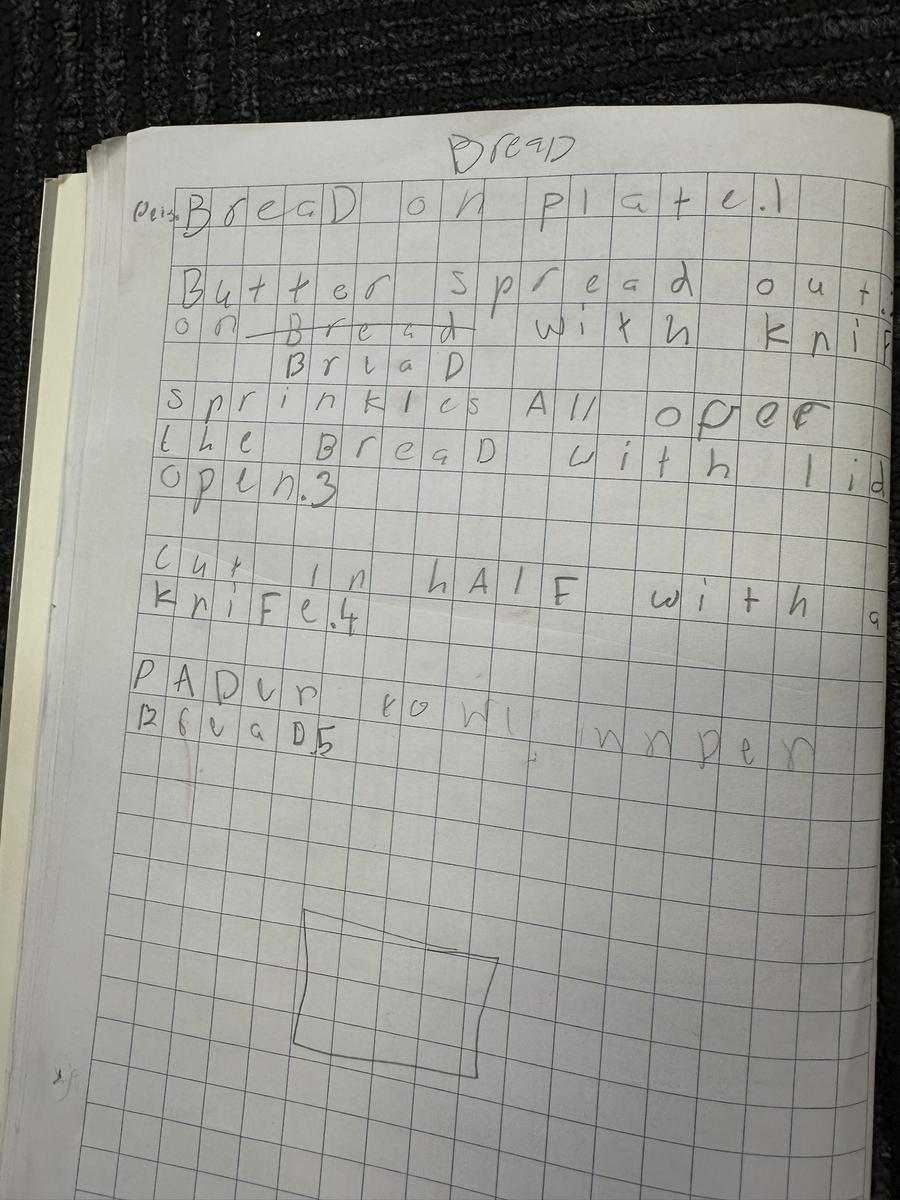 Bread
BreaD on plate.1
Butter spread out
on Bread with knif
BreaD
sprinkles All oper
the BreaD with lid
open.3
cut in hAlF with a
kniFe.4
PADer towl unnDer
BreaD5